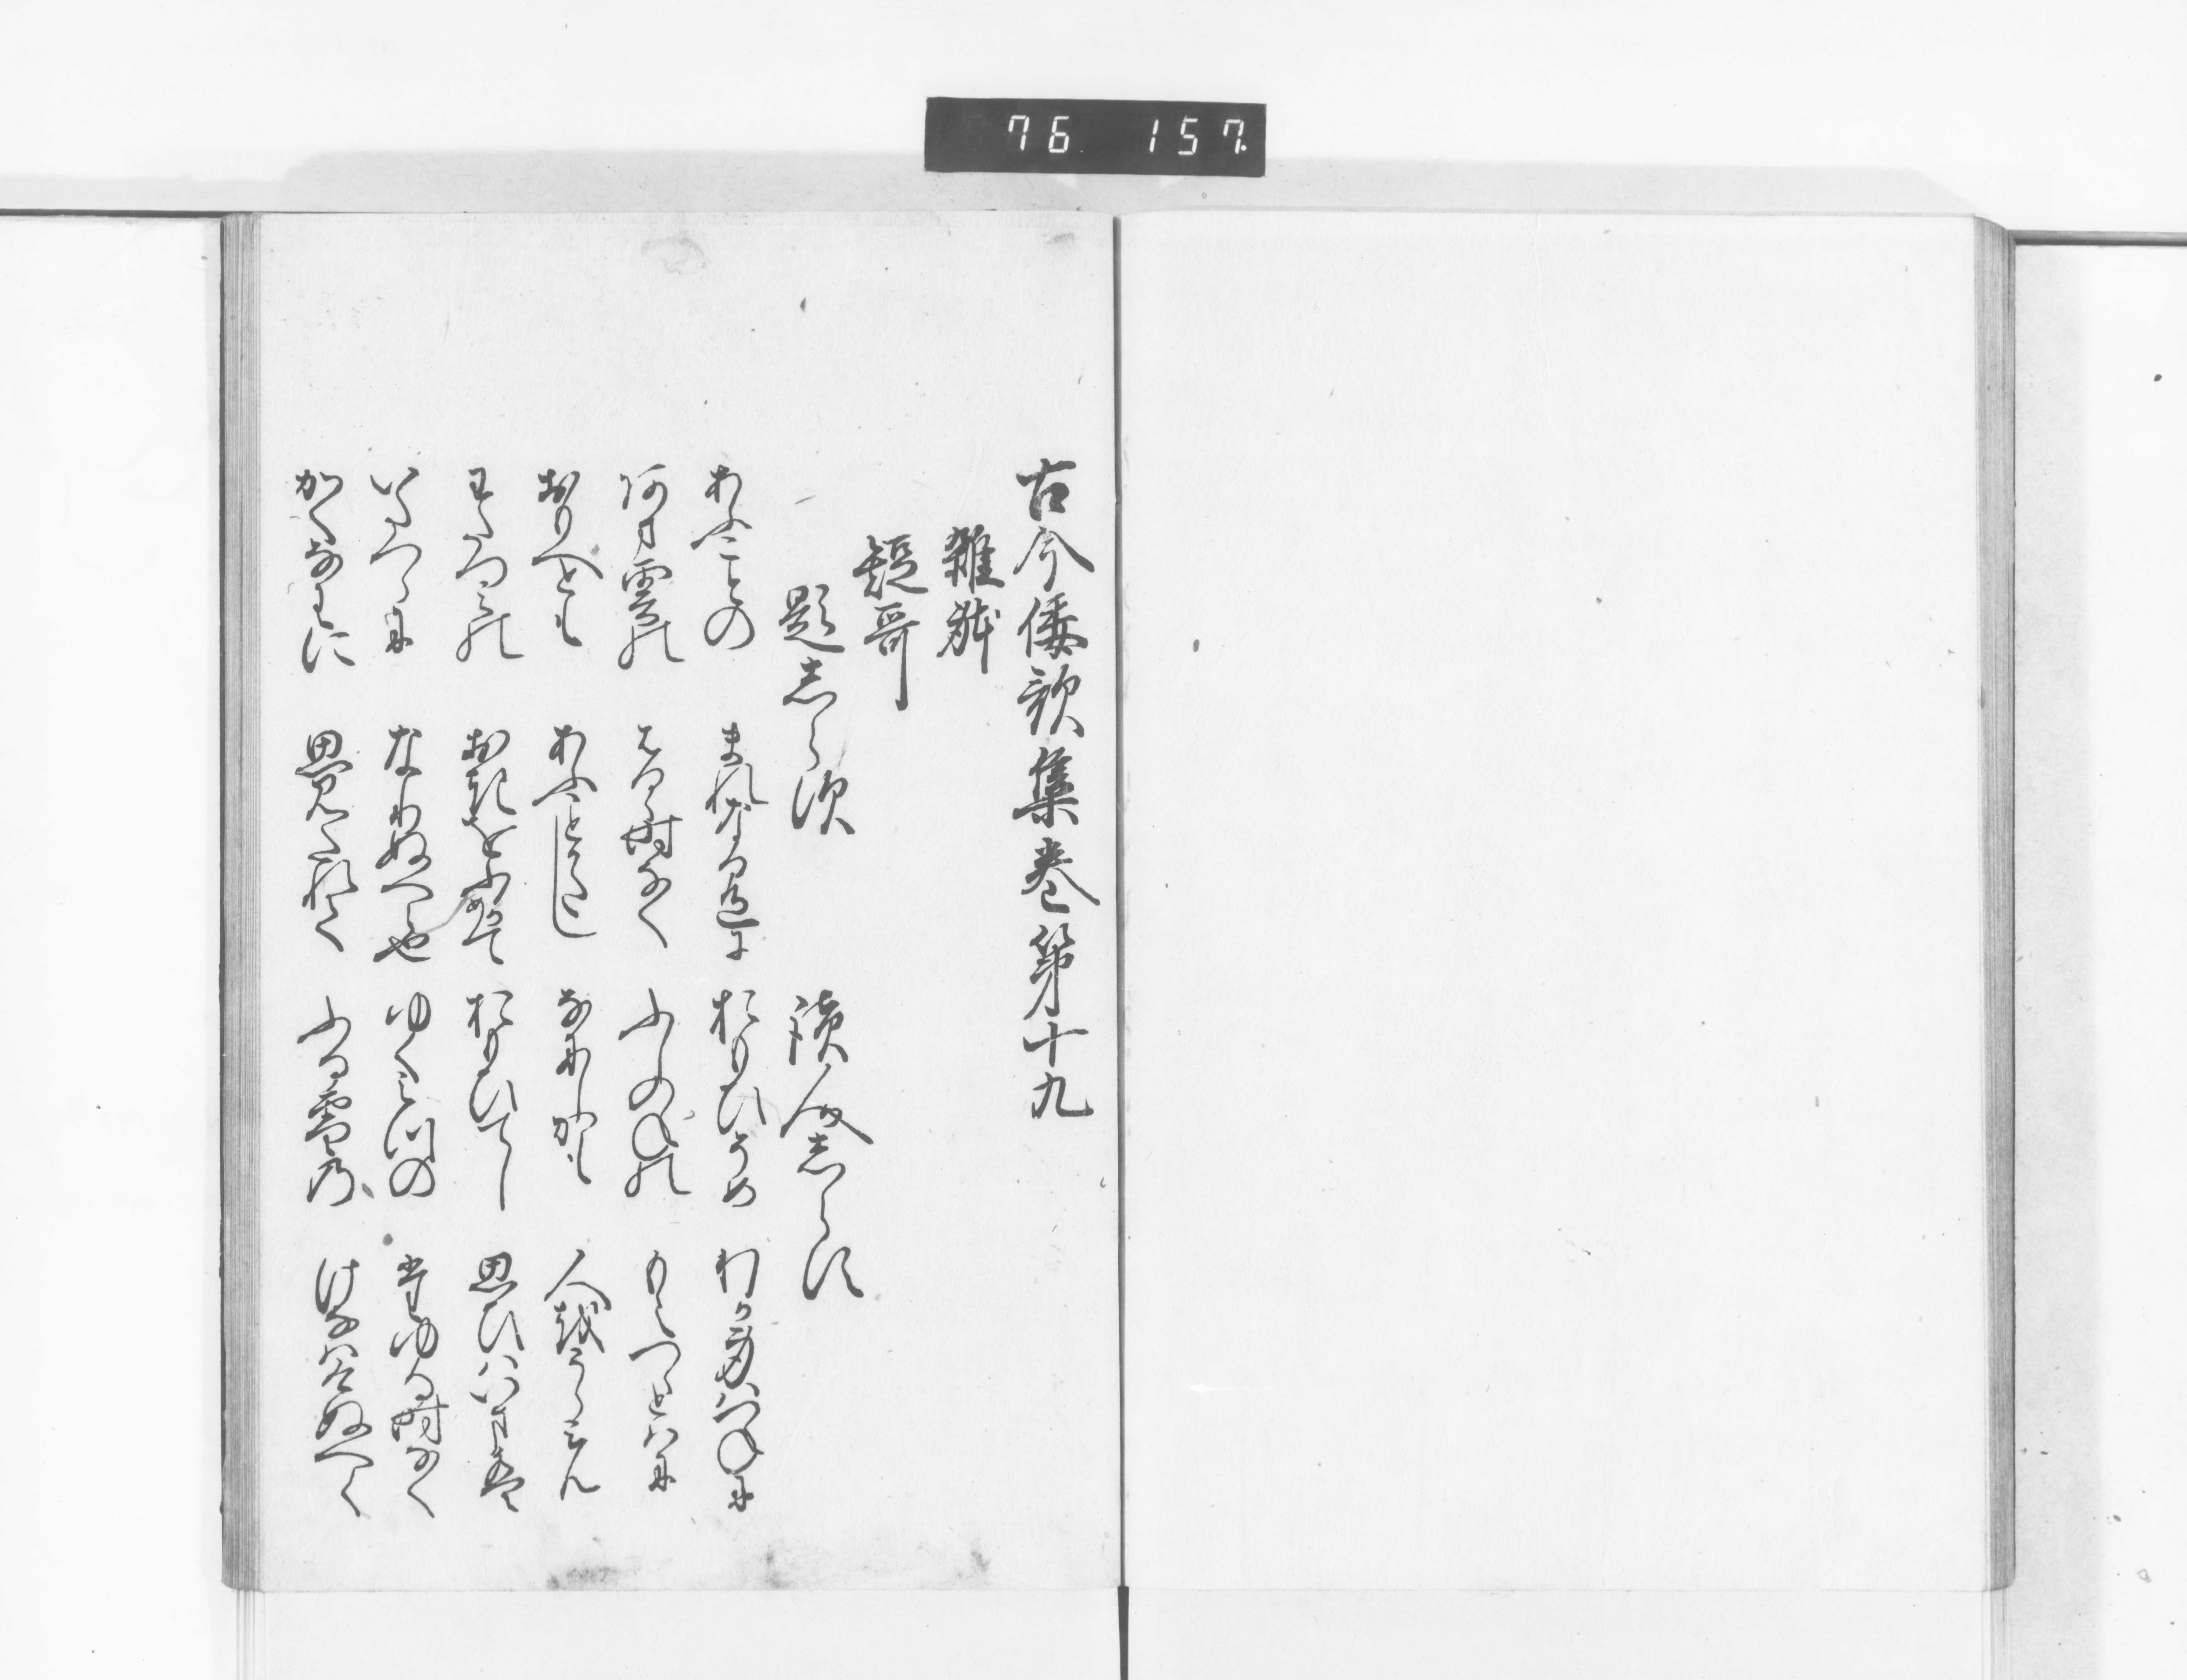 76 157.
古今倭謌集巻第十九
雑躰
短哥
題志らす 読人志らす
あふことの まれなる色に おもひそめ わか身はつねに
あま雲の はるゝ時なく ふしのねの もえつゝとはに
おもへとも あふことかたし なにしかも 人をうらみん
わたつみの おきをふかめて おもひてし 思ひはいまは
いたつらに なりぬへら也 ゆく水の たゆる時なく
かくなわに 思みたれて ふる雪の けなはけぬへく